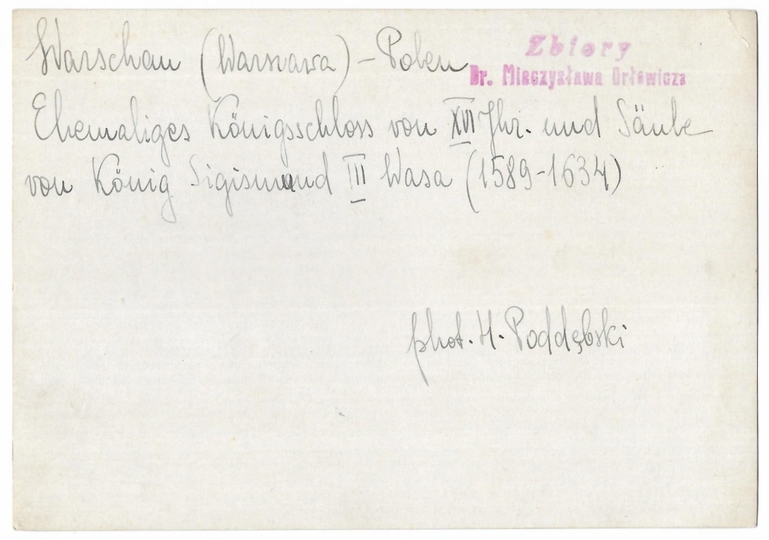 Warschau (Warszawa) - Polen
Zbiory
Dr. Mieczysława Orłowicza
Ehemaliges Königsschloss von XVI Jhr. und Säule
von König Sigismund III Wasa (1589-1634)
phot. H. Poddębski